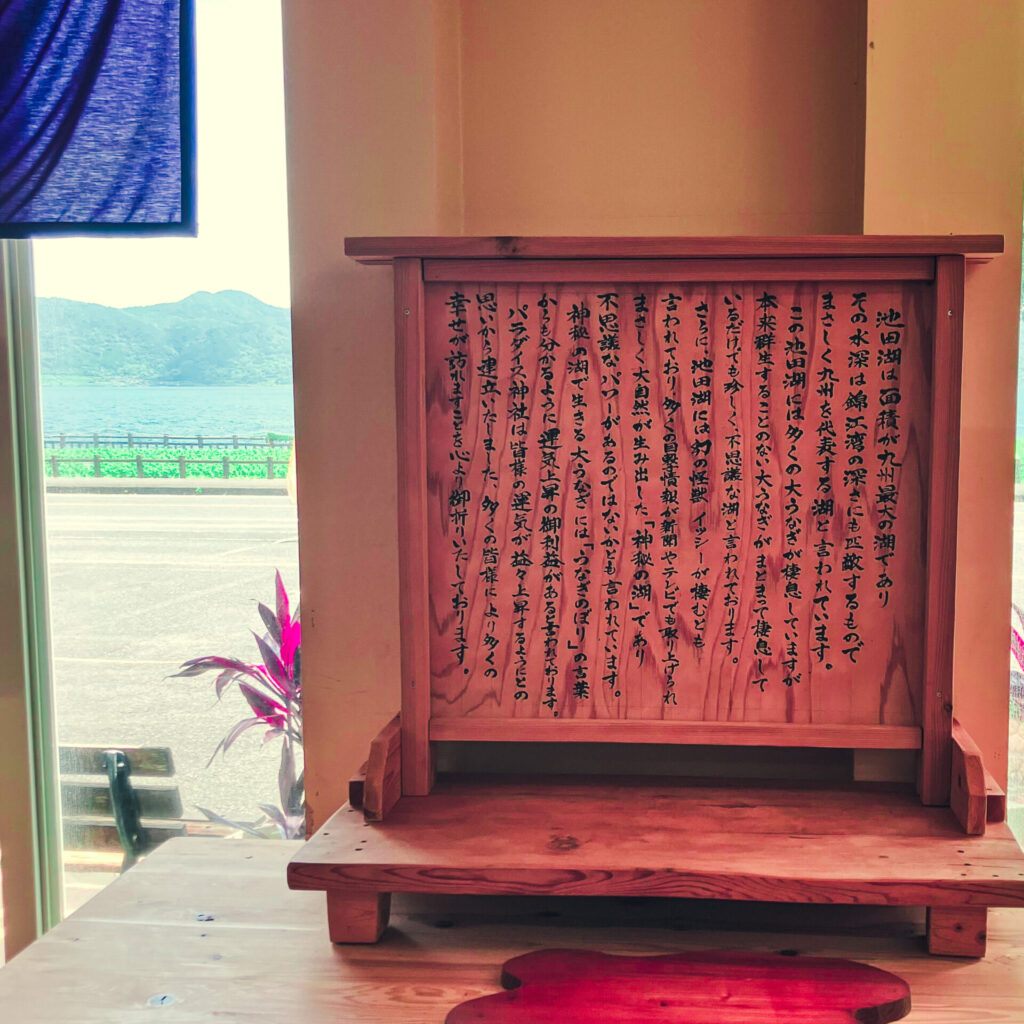 池田湖は面積が九州最大の湖であり
その水深は錦江湾の深さにも匹敵するもので
まさしく九州を代表する湖と言われています。
この池田湖には多くの大うなぎが棲息していますが
本来群生することのない大うなぎがまとまって棲息して
いるだけでも珍しく、不思議な湖と言われております。
さらに池田湖には幻の怪獣イッシーが棲むとも
言われており多くの目撃情報が新聞やテレビでも取り上げられ
まさしく大自然が生み出した「神秘の湖」であり
不思議なパワーがあるのではないかとも言われています。
神秘の湖で生きる大うなぎには「うなぎのぼり」の言葉
からも分かるように運気上昇の御利益があると言われております。
パラダイス神社は皆様の運気が益々上昇するようにとの
思いから建立いたしました。多くの皆様により多くの
幸せが訪れますことを心より御祈りいたしております。